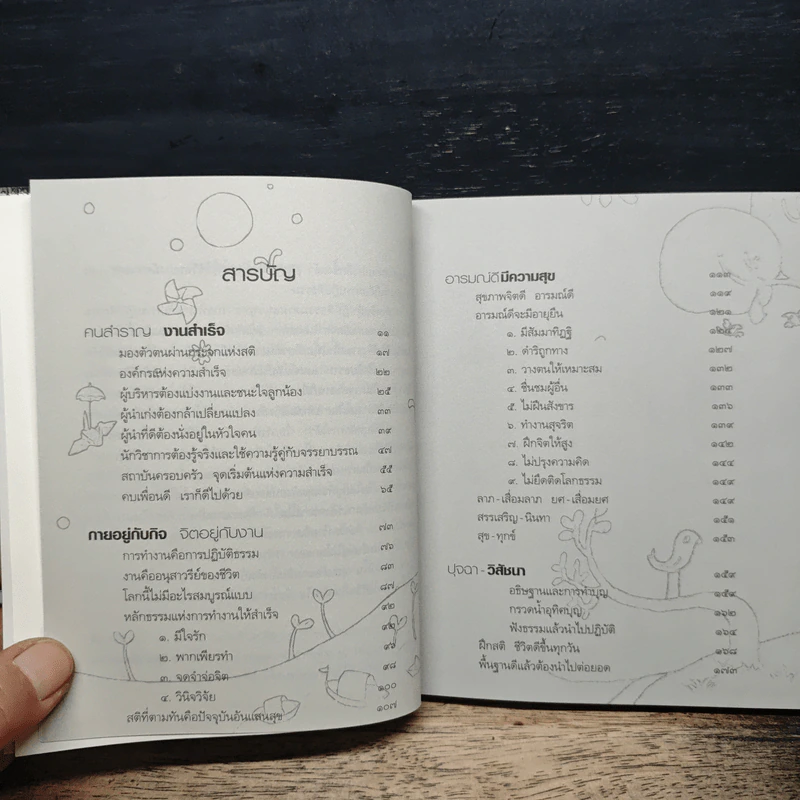 สารบัญ
คนสำราญ งานสำเร็จ ๑๑
มองตัวตนผ่านกระจกแห่งสติ ๑๗
องค์กรแห่งความสำเร็จ ๒๒
ผู้บริหารต้องแบ่งงานและชนะใจลูกน้อง ๒๕
ผู้นำเก่งต้องกล้าเปลี่ยนแปลง ๓๓
ผู้นำที่ดีต้องนั่งอยู่ในหัวใจคน ๓๙
นักวิชาการต้องรู้จริงและใช้ความรู้คู่กับจรรยาบรรณ ๔๗
สถาบันครอบครัว จุดเริ่มต้นแห่งความสำเร็จ ๕๕
คบเพื่อนดี เราก็ดีไปด้วย ๖๕
กายอยู่กับกิจ จิตอยู่กับงาน ๗๓
การทำงานคือการปฏิบัติธรรม ๗๖
งานคืออนุสาวรีย์ของชีวิต ๘๓
โลกนี้ไม่มีอะไรสมบูรณ์แบบ ๘๗
หลักธรรมแห่งการทำงานให้สำเร็จ ๙๒
๑. มีใจรัก
๒. พากเพียรทำ ๙๖
๓. จดจำจ่อจิต ๙๘
๔. วินิจวิจัย ๑๐๐
สติที่ตามทันคือปัจจุบันอันแสนสุข ๑๐๗
อารมณ์ดีมีความสุข ๑๑๓
สุขภาพจิตดี อารมณ์ดี ๑๑๙
อารมณ์ดีจะมีอายุยืน ๑๒๑
๑. มีสัมมาทิฏฐิ
๒. ดำริถูกทาง ๑๒๗
๓. วางตนให้เหมาะสม ๑๓๒
๔. ชื่นชมผู้อื่น ๑๓๓
๕. ไม่ฝืนสังขาร ๑๓๖
๖. ทำงานสุจริต ๑๓๙
๗. ฝึกจิตให้สูง ๑๔๒
๘. ไม่ปรุงความคิด ๑๔๔
๙. ไม่ยึดติดโลกธรรม ๑๔๙
ลาภ-เสื่อมลาภ ยศ-เสื่อมยศ ๑๔๙
สรรเสริญ-นินทา ๑๕๑
สุข-ทุกข์ ๑๕๓
ปุจฉา-วิสัชนา ๑๕๙
อธิษฐานและการทำบุญ ๑๕๙
กรวดน้ำอุทิศบุญ ๑๖๒
ฟังธรรมแล้วนำไปปฏิบัติ ๑๖๔
ฝึกสติ ชีวิตดีขึ้นทุกวัน ๑๖๘
พื้นฐานดีแล้วต้องนำไปต่อยอด ๑๗๓